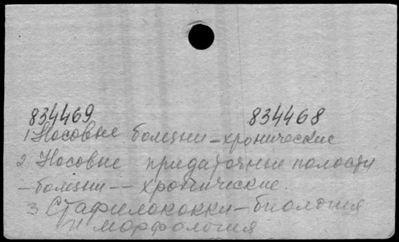 834469 834468
1. Носовые болезни - хронические
2. Носовые придаточные полости
- болезни -- хронические.
3. Стафилококки - биология
и морфология